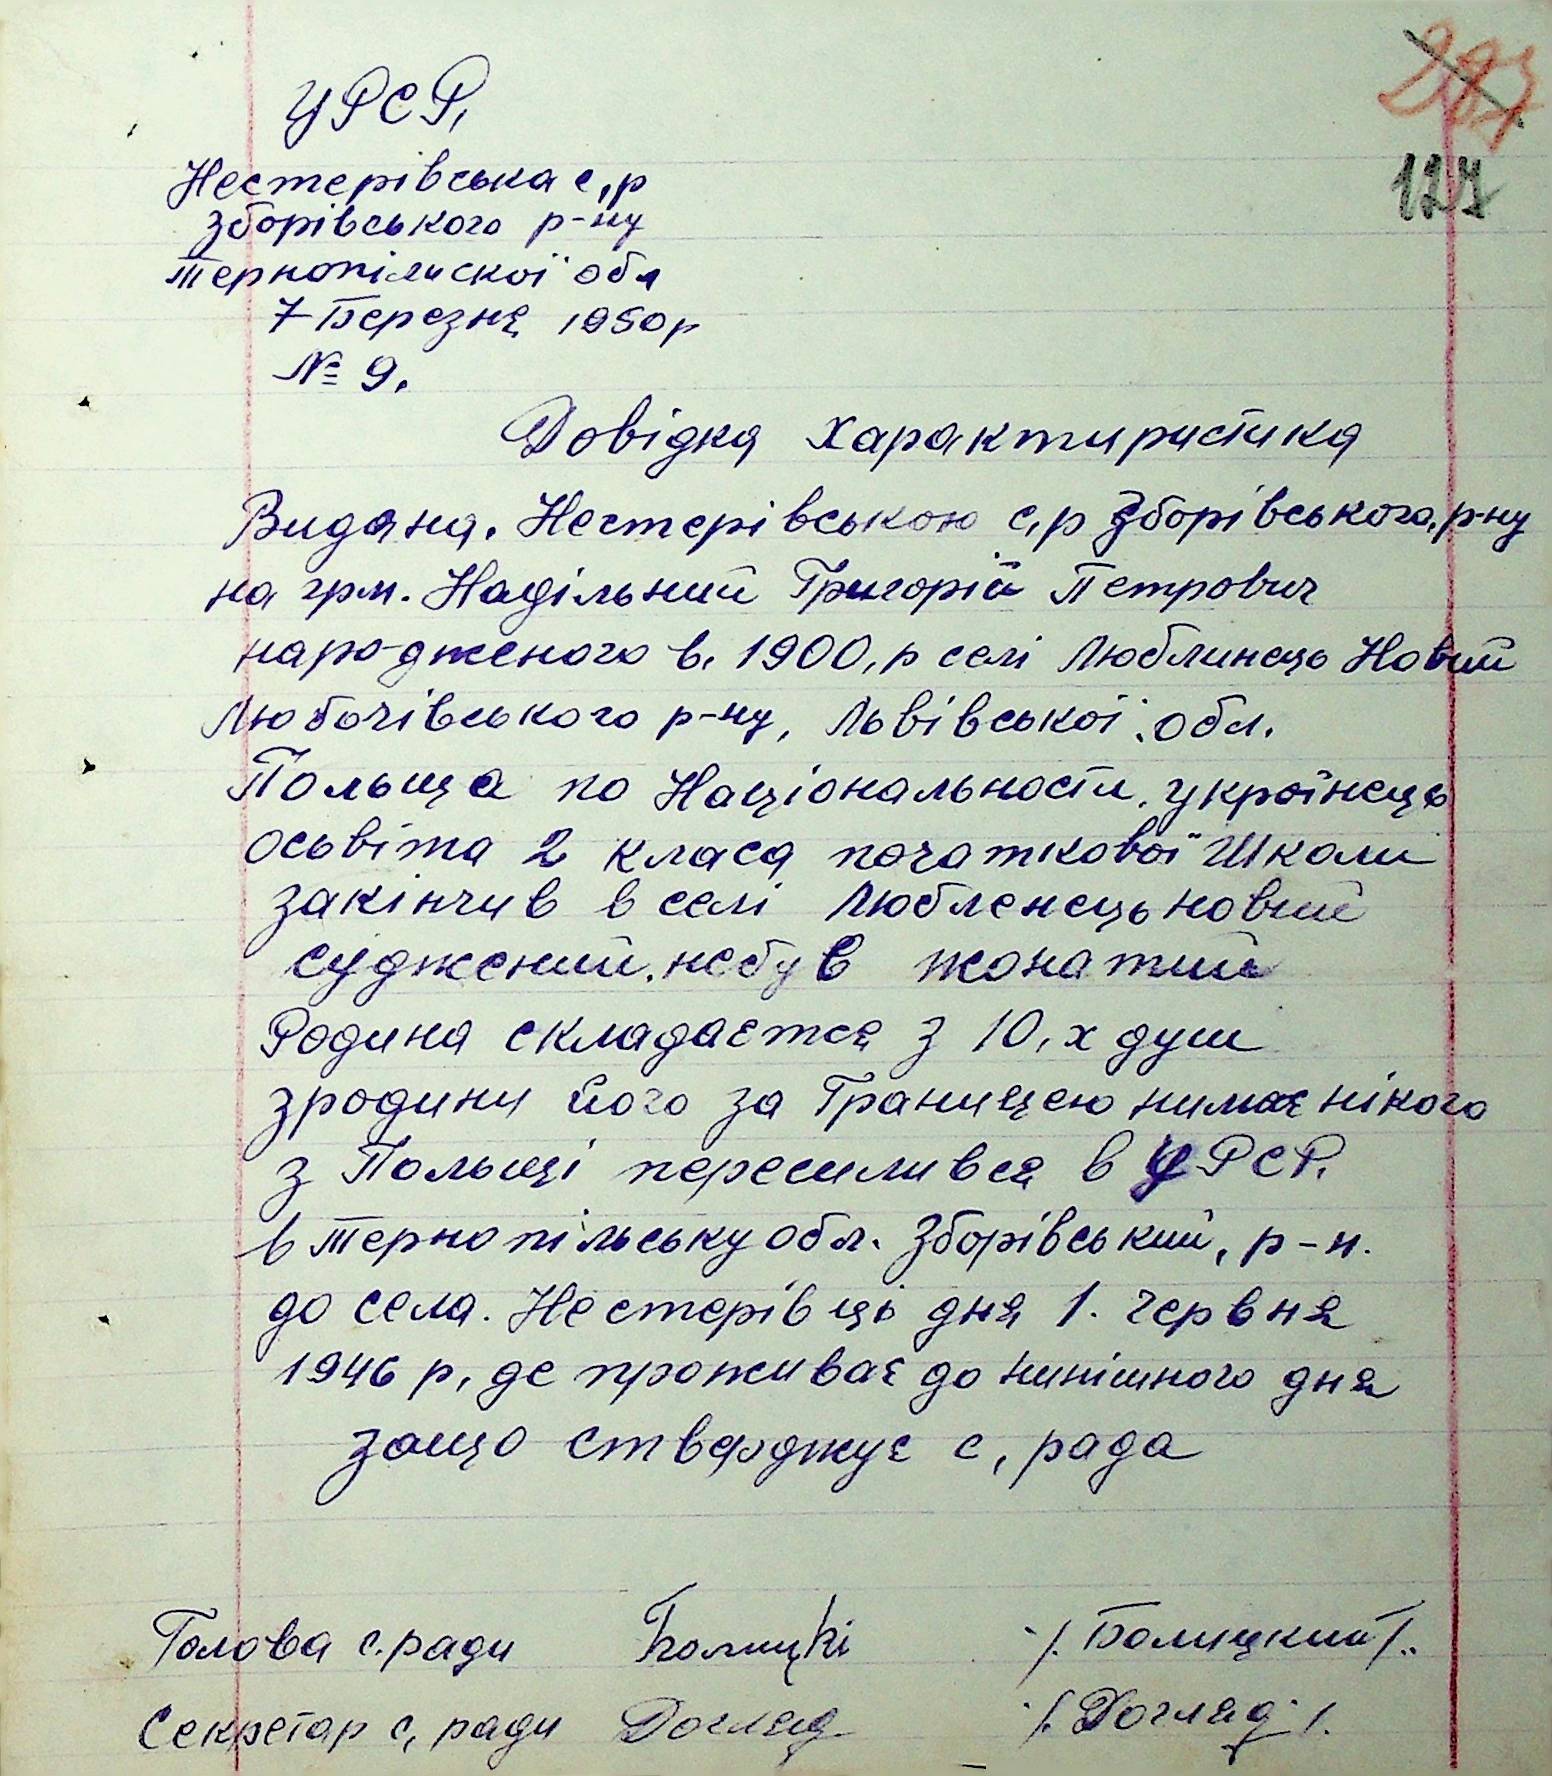 287
127
УРСР,
Нестерівська с,р
Зборівського р-ну
Тернопілиской обл
7 Березня 1950р
№ 9.
Довідка характиристика
Видана. Нестерівською с,р Зборівського, р-ну
на грм. Надільний Григорій Петрович
народженого в. 1900, р селі Люблинець Новий
Любочівського р-ну, Львівської обл.
Польща по Національности. українець
осьвіта 2 класа початкової Школи
закінчив в селі Любленець новий
суджений. небув жонатий
Родина складаєтся з 10,х душ
зродини його за Границею нимає нікого
з Польщі пересиливея в УРСР.
в Тернопільську обл. Зборівський, р-н.
до села. Нестерівці дня 1. червня
1946 р, де проживає до нинішного дня
защо стверджує с, рада
Голова с. ради Болицкі /. Болицкий /.
Секретар с, ради Догляд /. Догляд /.